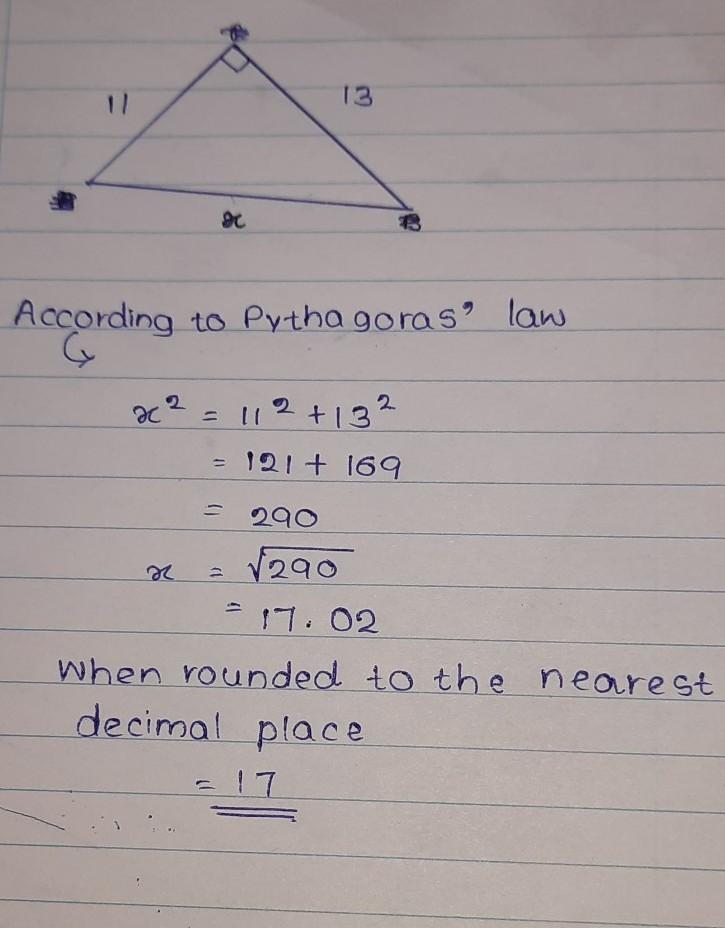 11
13
x
According to Pythagoras' law
x² = 11² + 13²
= 121 + 169
= 290
x = √290
= 17.02
When rounded to the nearest
decimal place
= 17